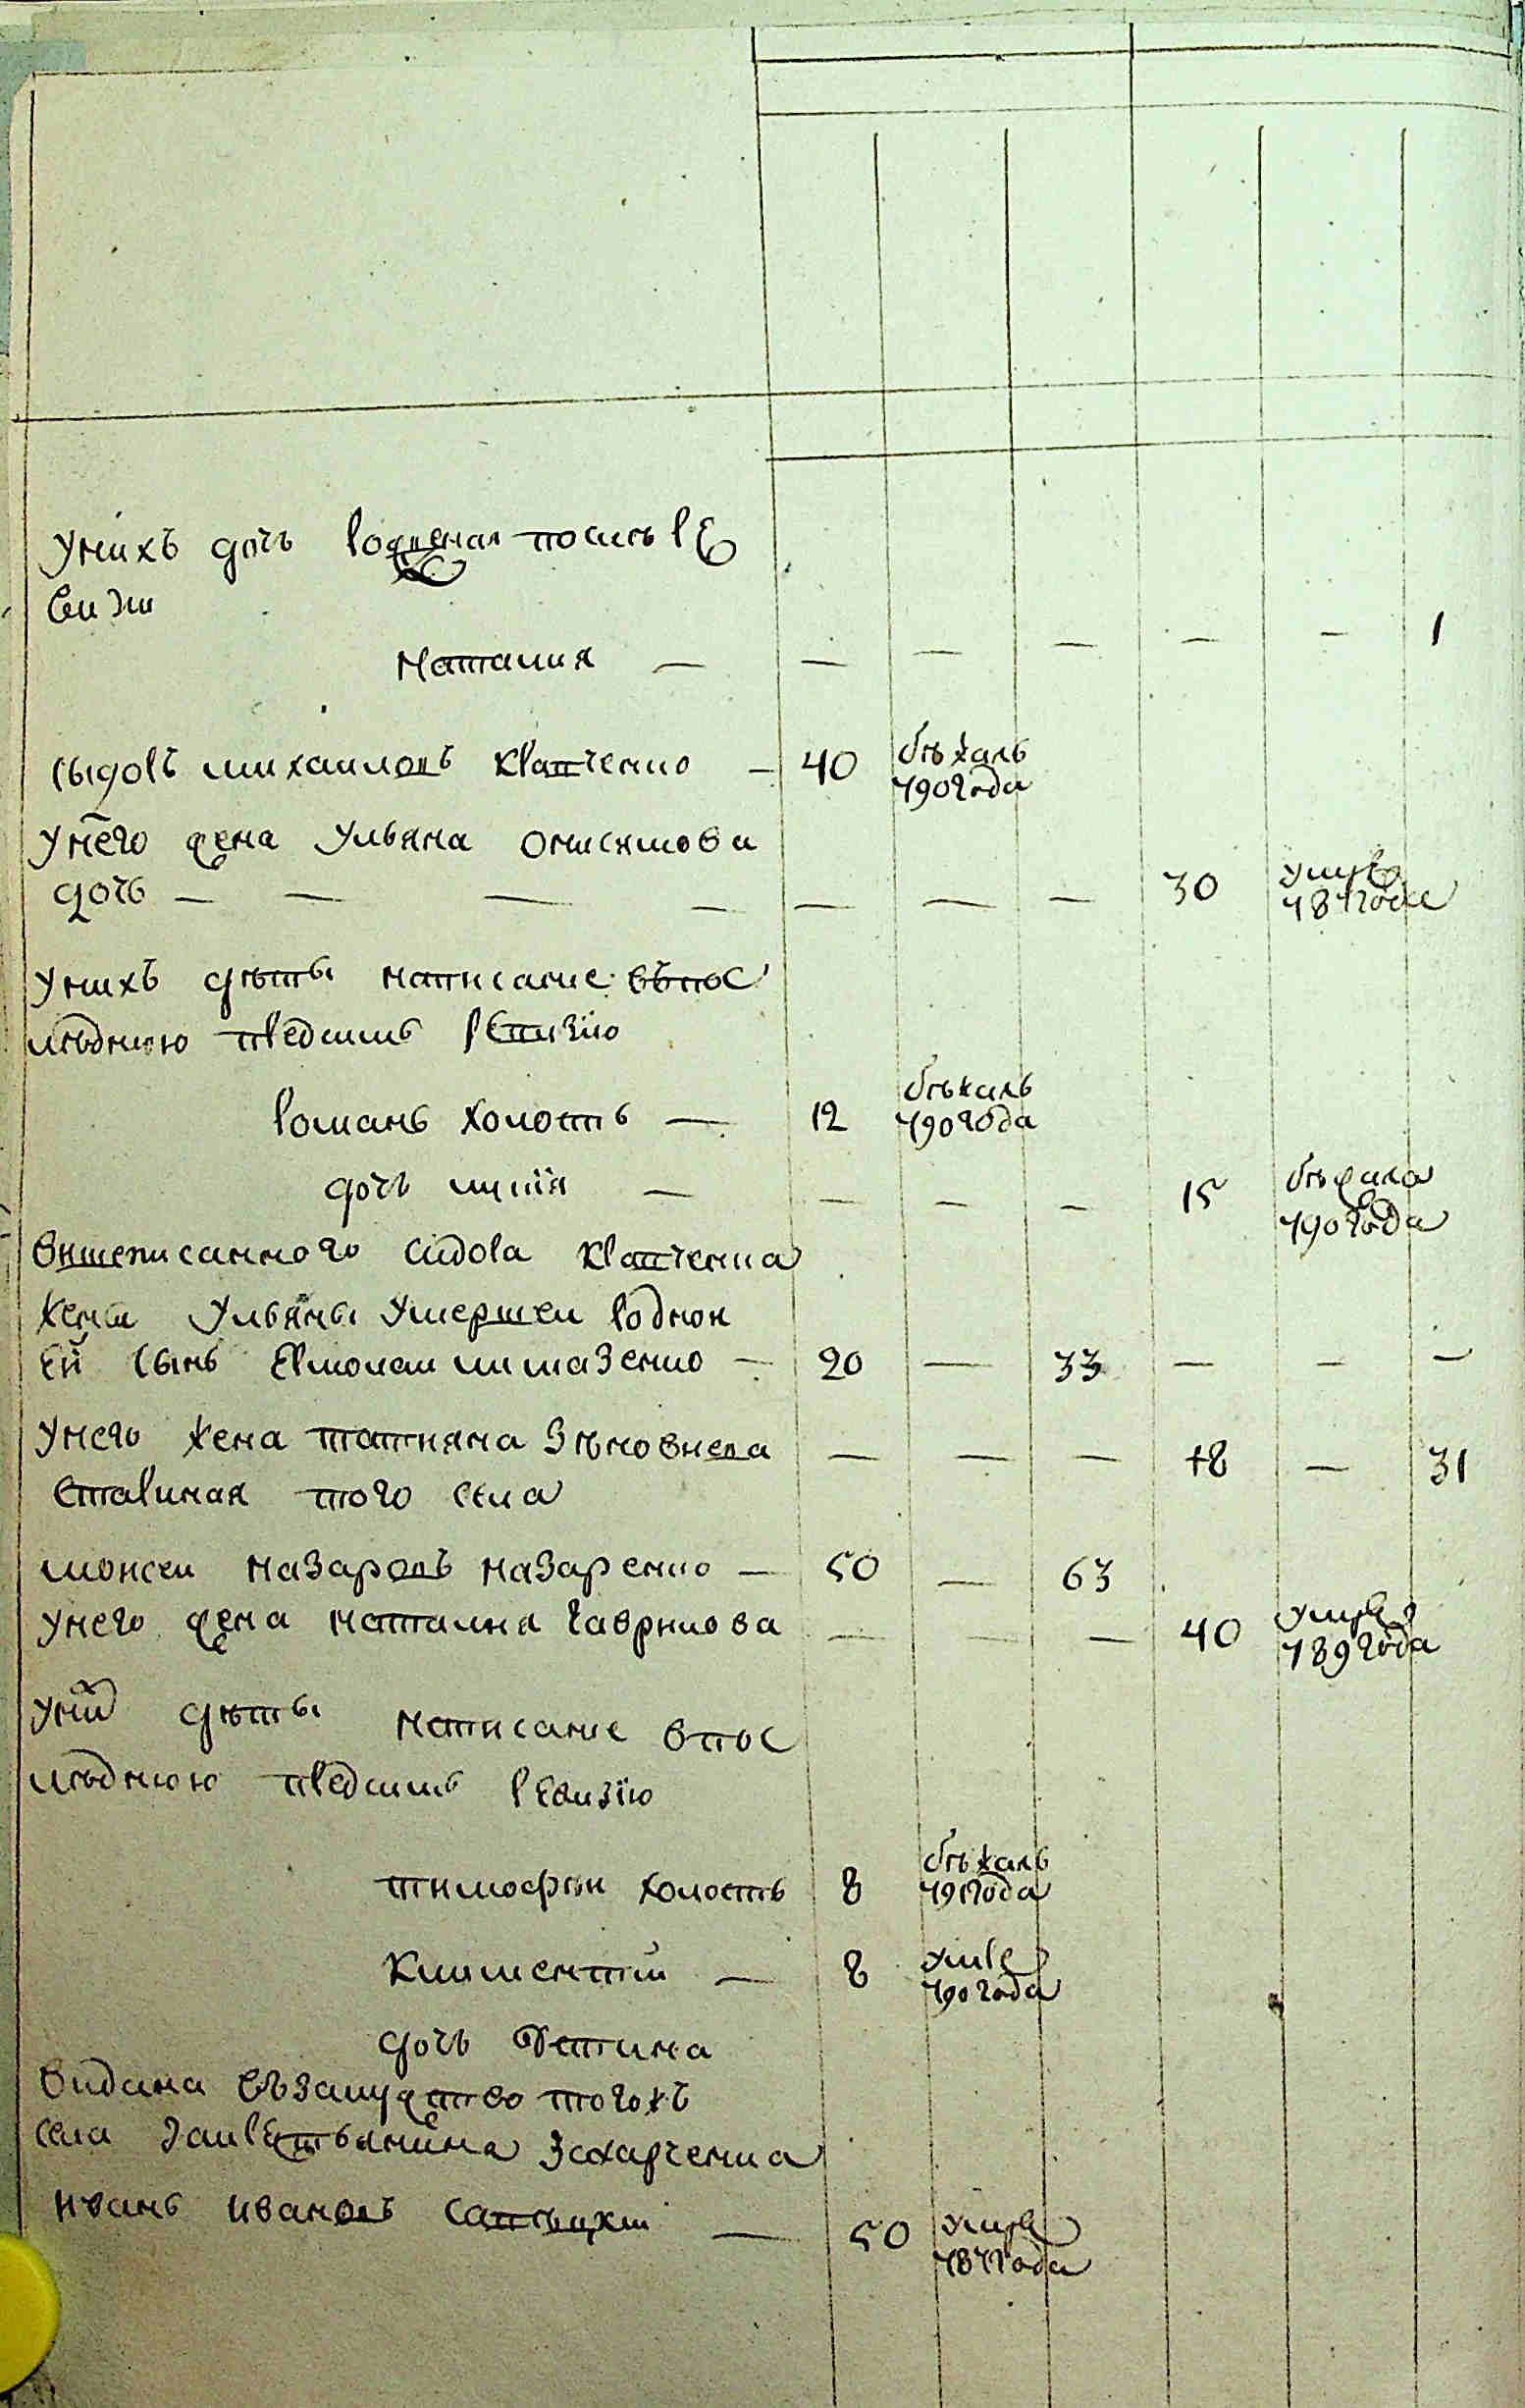 У нихъ дочь рожденая после ре
визи
Наталия — — — — — — 1
Сыдоръ михаиловъ Крапченко — 40 бѣжалъ
790 года
У него жена Ульяна Онисимова
дочь — — — — — — — 30 умре
787 года
У нихъ дѣты написание въ пос
лѣднюю предъ симъ ревизiю
Романъ холостъ — 12 бѣжалъ
790 года
дочь — — — — 15 бѣжала
790 года
Вишеписанного Сидора Крапченка
жены Ульяны умершеи родной
ей сынъ Ермолаи — 20 — 33 — — —
У него жена Татияна Зѣновиева — — — 18 — 31
старинная того села
Моисеи Назаровъ Назаренко — 50 — 63
У него жена Наталия Гаврилова — — — 40 умре
789 года
У них дѣты написание в пос
лѣднюю предъ симъ ревизiю
Тимофѣи холостъ 8 бѣжалъ
791 года
Климентiй — 8 умре
790 года
дочь
Видана въ замужство того жъ
села за Захарченка
Иванъ Ивановъ — 50 умре
787 года